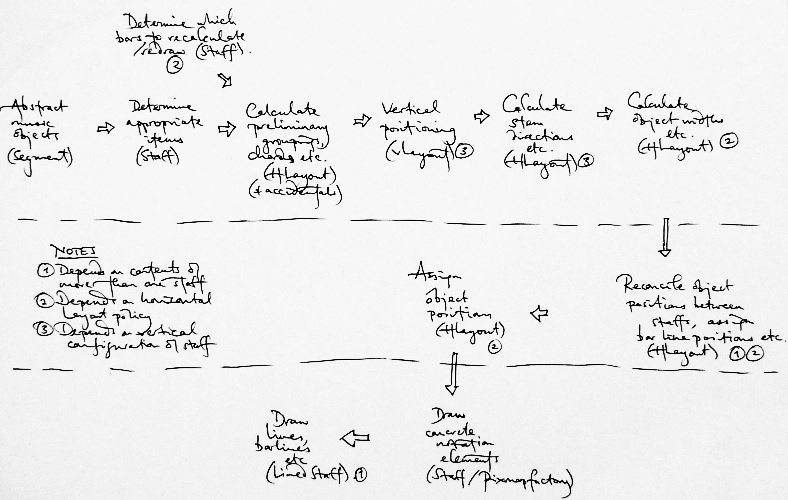 Determine which
bars to recalculate
/redraw (Staff).
②
Abstract
music
objects
(Segment)
Determine
appropriate
items
(Staff)
Calculate
preliminary
groupings,
chords etc.
(HLayout)
(+ accidentals)
Vertical
positioning
(VLayout) ③
Calculate
stem
directions
etc.
(HLayout) ③
Calculate
object widths
etc.
(HLayout) ②
NOTES
① Depends on contents of
more than one staff
② Depends on horizontal
layout policy
③ Depends on vertical
configuration of staff
Assign
object
positions
(HLayout)
②
Reconcile object
positions between
staffs, assign
bar line positions etc.
(HLayout) ① ②
Draw
lines,
barlines
etc
(LinedStaff) ①
Draw
concrete
notation
elements
(Staff / Pixmapfactory)